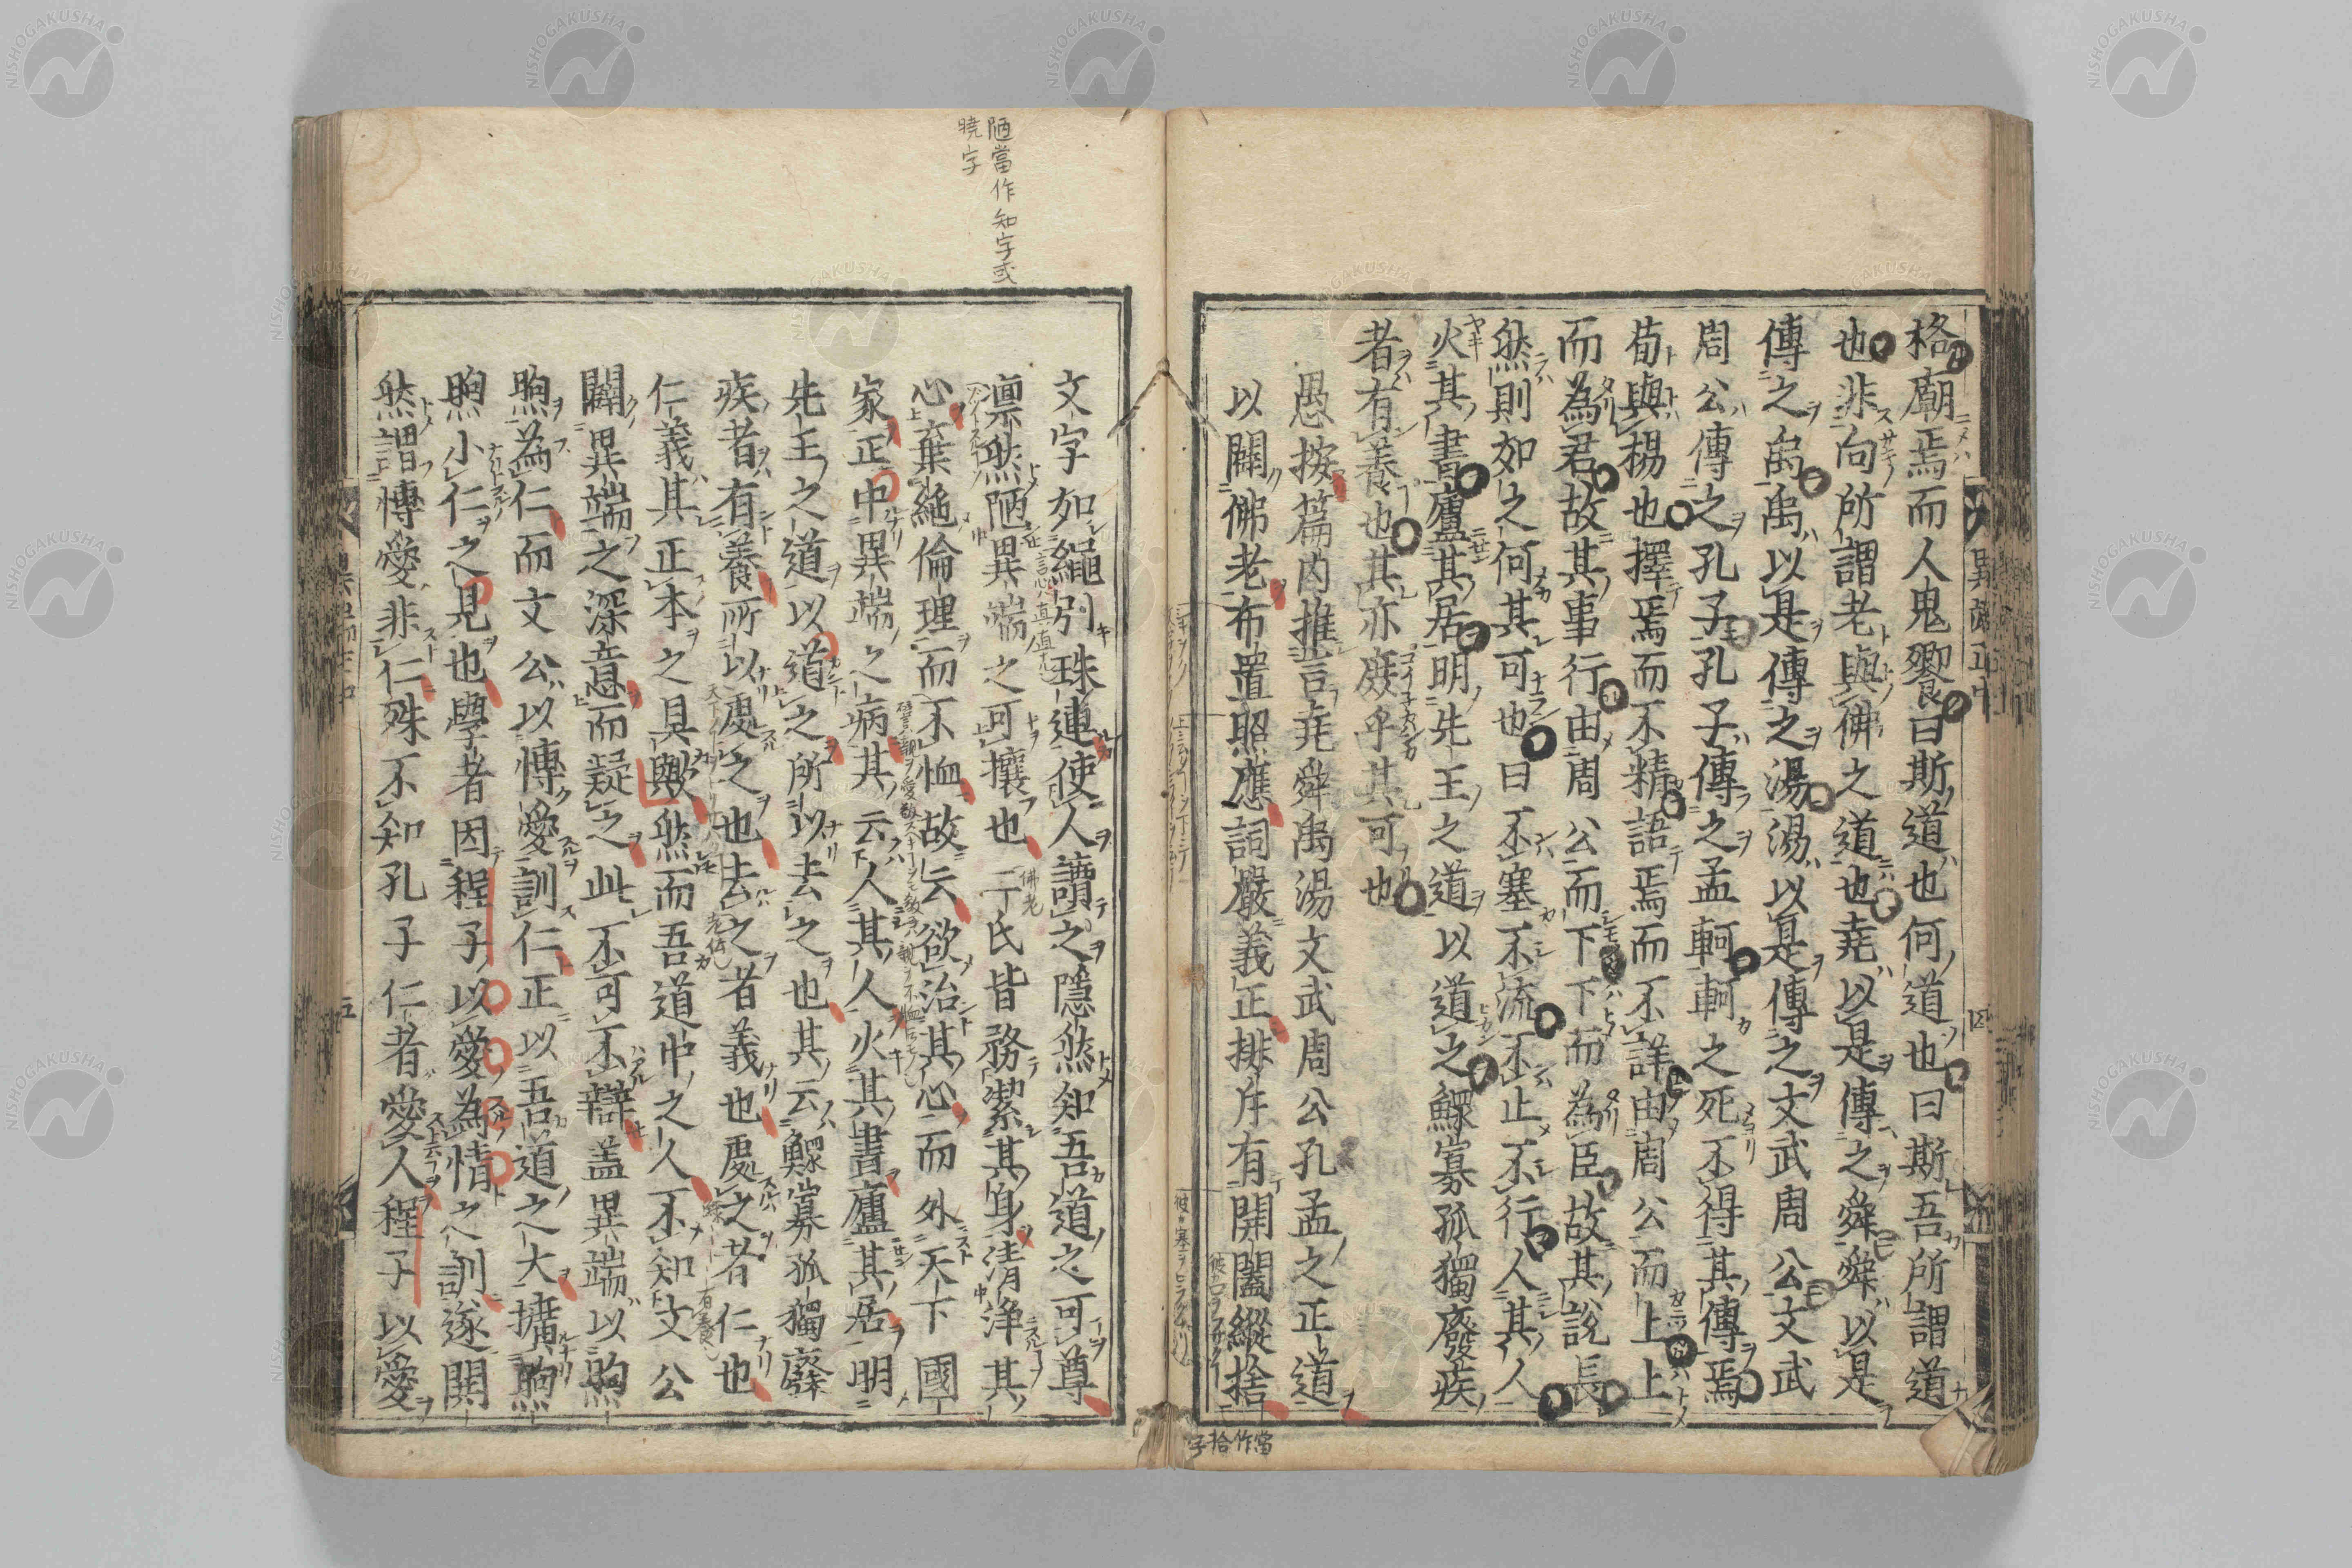 格廟焉而人鬼饗曰斯道也何道也曰斯吾所謂道
也非向所謂老與佛之道也堯以是傳之舜舜以是
傳之禹禹以是傳之湯湯以是傳之文武周公文武
周公傳之孔子孔子傳之孟軻軻之死不得其傳焉
荀與楊也擇焉而不精語焉而不詳由周公而上上
而為君故其事行由周公而下下而為臣故其說長
然則如之何其可也曰不塞不流不止不行人其人
火其書廬其居明先王之道以道之鰥寡孤獨廢疾
者有養也其亦庶乎其可也
愚按篇内推言堯舜禹湯文武周公孔孟之正道
以闢佛老布置照應詞嚴義正排斥有開闔縱捨
當作拾字
陋當作知字或
曉字
文字如繩引珠連使人讀之隱然知吾道之可尊
凛然陋異端之可攘也二氏皆務潔其身清淨其
心棄絶倫理而不恤故云欲治其心而外天下國
家正中異端之病其云人其人火其書廬其居明
先王之道以道之所以去之也其云鰥寡孤獨廢
疾者有養所以處之也去之者義也處之者仁也
仁義其正本之具與然而吾道中之人不知文公
闢異端之深意而疑之此不可不辯蓋異端以煦
煦為仁而文公以博愛訓仁正以吾道之大擴煦
煦小仁之見也學者因程子以愛為情之訓遂開
然謂博愛非仁殊不知孔子仁者愛人程子以愛
異端正中
四
五
NISHOGAKUSHA